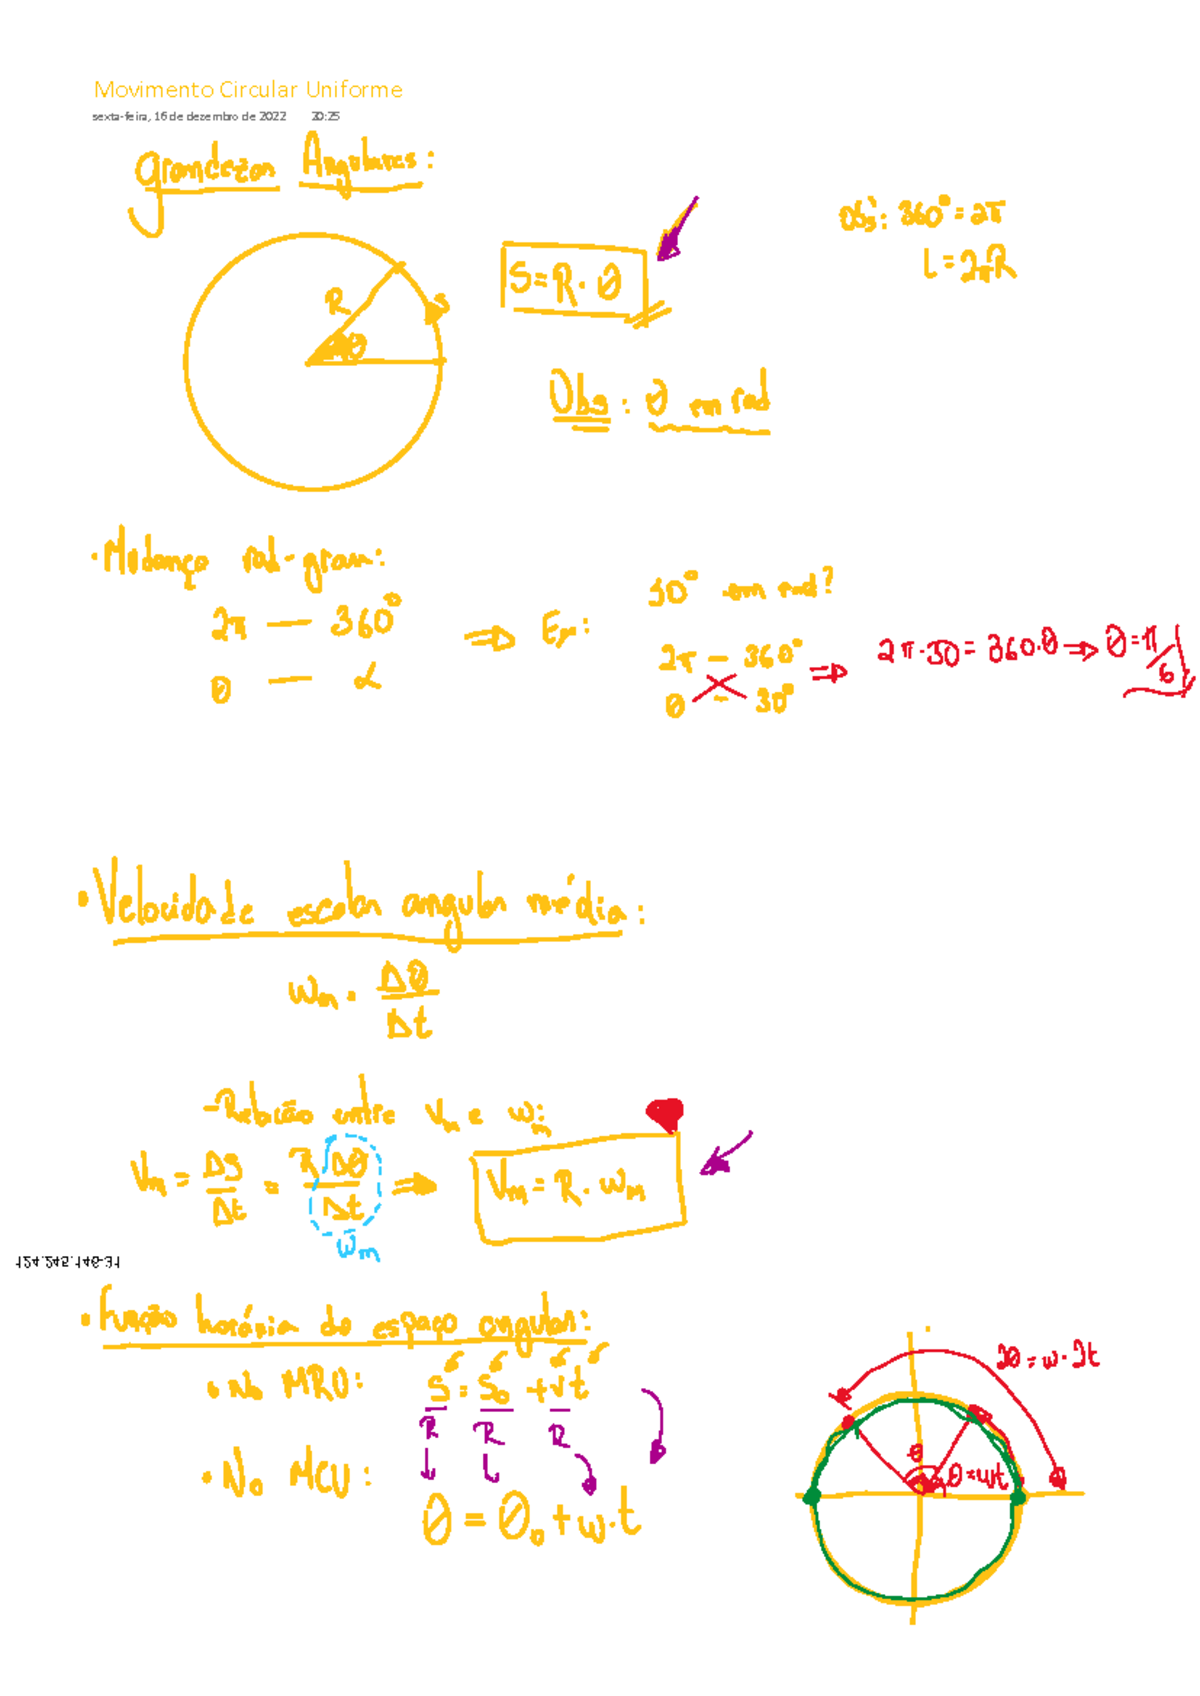 Movimento Circular Uniforme
sexta-feira, 16 de dezembro de 2022 20:25
Grandezas Angulares:
Obs: 360° = 2π
L = 2πR
R
S
θ
S = R · θ
Obs: θ em rad
· Mudança rad-grau:
2π — 360°
θ — α
⇒ Ex:
30° em rad?
2π — 360°
θ — 30°
⇒ 2π·30 = 360·θ ⇒ θ = π/6
· Velocidade escalar angular média:
wm = Δθ/Δt
- Relação entre Vm e wm:
Vm = ΔS/Δt = R Δθ/Δt ⇒ Vm = R · wm
wm
124.245.146-31
· Função horária do espaço angular:
· No MRU: S = S0 + vt
R R R
· No MCU:
θ = θ0 + w·t
2θ = w·2t
θ
θ = wt